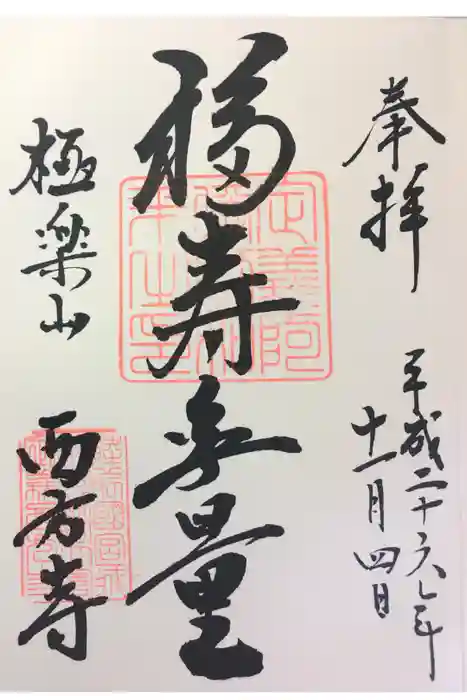 奉拝
平成二十六年
十一月四日
福寿無量
極楽山
西方寺